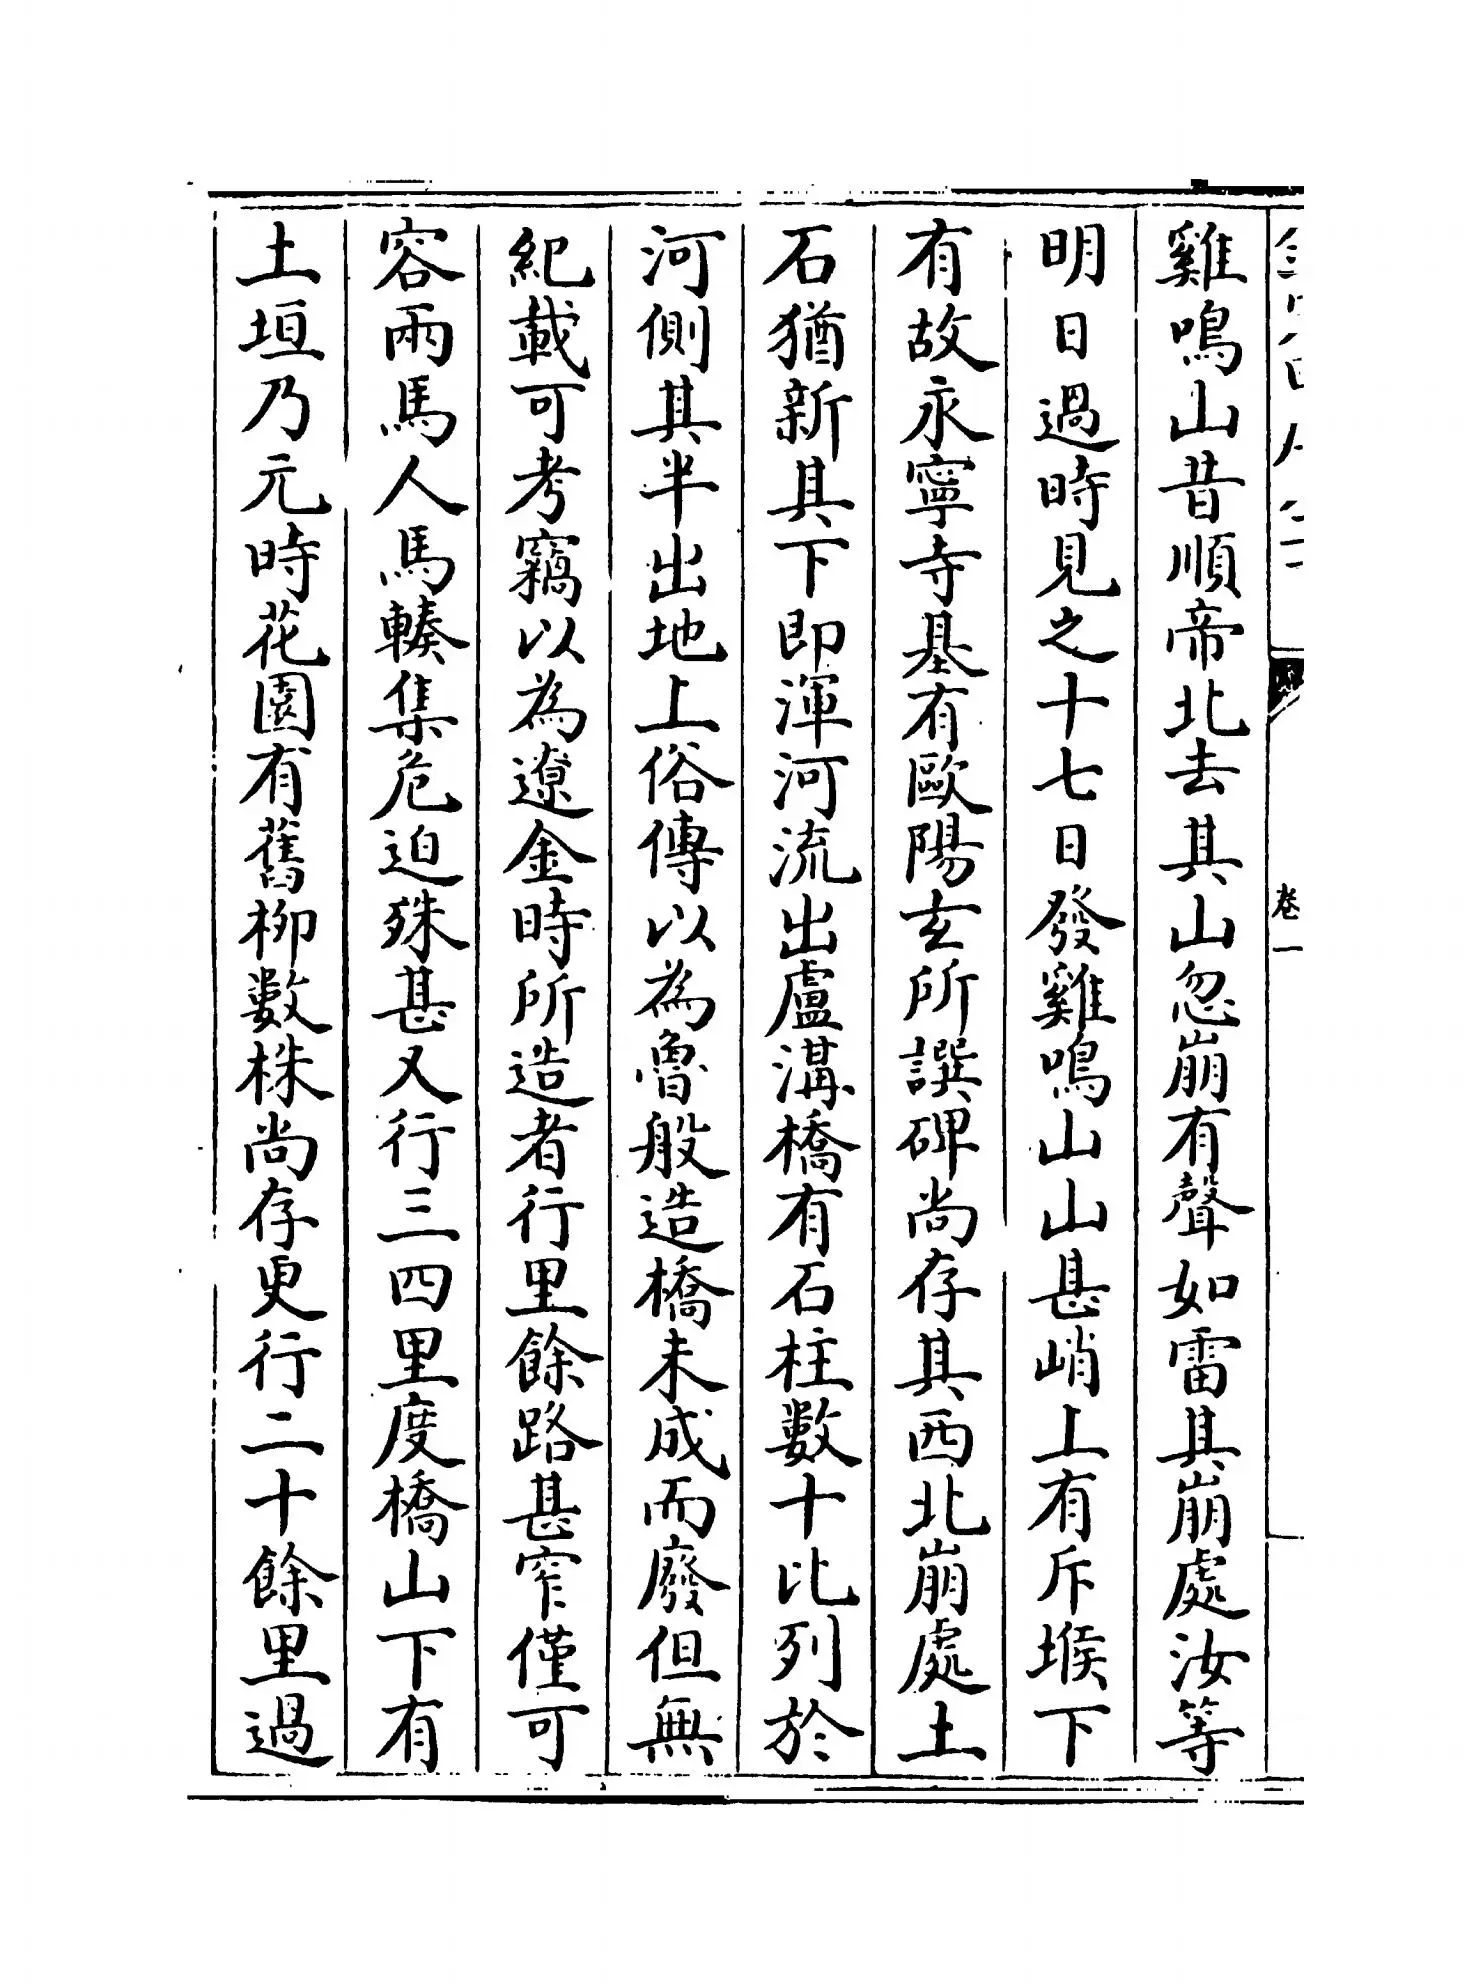 卷一
雞鳴山昔順帝北去其山忽崩有聲如雷其崩處汝等
明日過時見之十七日發雞鳴山山甚峭上有斥堠下
有故永寧寺基有歐陽玄所譔碑尚存其西北崩處土
石猶新其下即渾河流出盧溝橋有石柱數十比列於
河側其半出地上俗傳以為魯般造橋未成而廢但無
紀載可考竊以為遼金時所造者行里餘路甚窄僅可
容兩馬人馬輳集危迫殊甚又行三四里度橋山下有
土垣乃元時花園有舊柳數株尚存更行二十餘里過